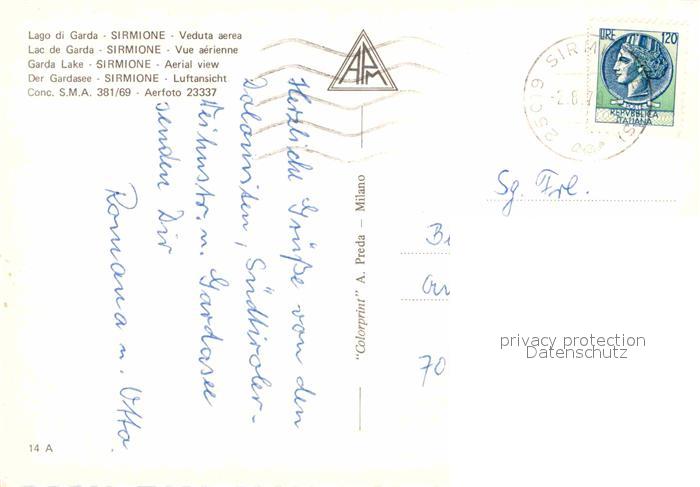 Lago di Garda - SIRMIONE - Veduta aerea
Lac de Garda - SIRMIONE - Vue aérienne
Garda Lake - SIRMIONE - Aerial view
Der Gardasee - SIRMIONE - Luftansicht
Conc. S.M.A. 381/69 - Aerfoto 23337
APM
LIRE 120
REPVBBLICA
ITALIANA
25019 SIRM
-2.8.7
Herzliche Grüße von den
Dolomiten, Südtiroler-
u. Gardasee
senden Dir
Romana u. Otto.
"Colorprint" A. Preda — Milano
Sg. Frl.
70
privacy protection
Datenschutz
14 A